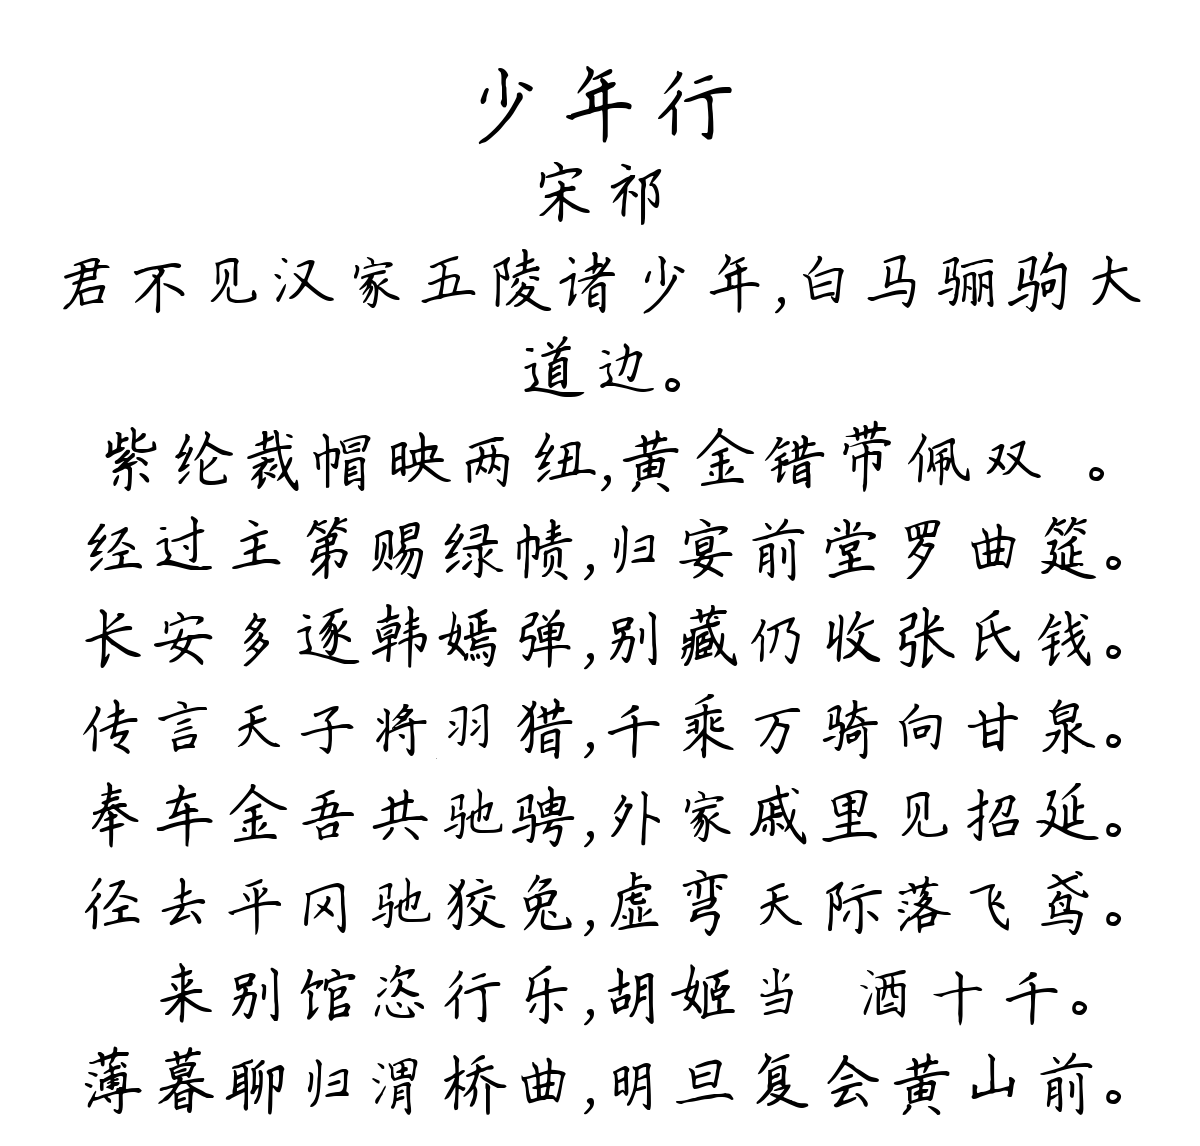 少年行
宋祁
君不见汉家五陵诸少年,白马骊驹大
道边。
紫纶裁帽映两纽,黄金错带佩双 。
经过主第赐绿帻,归宴前堂罗曲筵。
长安多逐韩嫣弹,别藏仍收张氏钱。
传言天子将羽猎,千乘万骑向甘泉。
奉车金吾共驰骋,外家戚里见招延。
径去平冈驰狡兔,虚弯天际落飞鸢。
来别馆恣行乐,胡姬当 酒十千。
薄暮聊归渭桥曲,明旦复会黄山前。